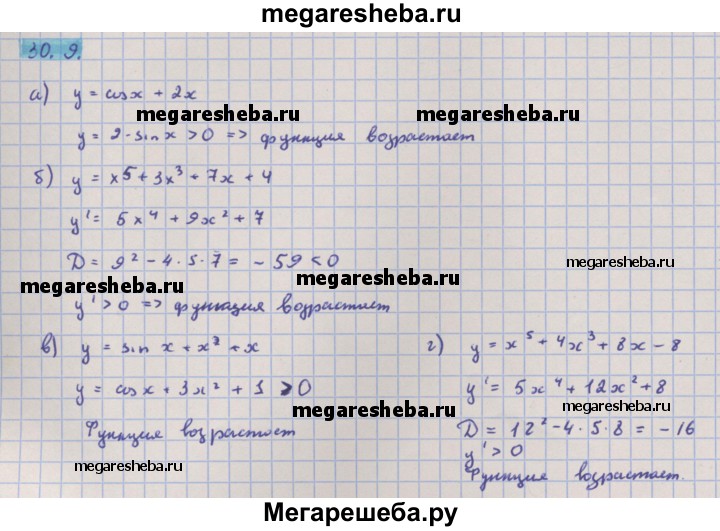 megaresheba.ru
30. 9.
а) y = cosx + 2x
megaresheba.ru megaresheba.ru
y = 2 - sin x > 0 => функция возрастает
б) y = x⁵ + 3x³ + 7x + 4
y' = 5x⁴ + 9x² + 7
D = 9² - 4 · 5 · 7 = - 59 < 0
megaresheba.ru
megaresheba.ru megaresheba.ru
y' > 0 => функция возрастает
в) y = sin x + x³ + x
y = cosx + 3x² + 1 > 0
megaresheba.ru
Функция возрастает
megaresheba.ru
г) y = x⁵ + 4x³ + 8x - 8
y' = 5x⁴ + 12x² + 8
megaresheba.ru
D = 12² - 4 · 5 · 8 = - 16
y' > 0
megaresheba.ru
Функция возрастает.
Мегарешеба.ру